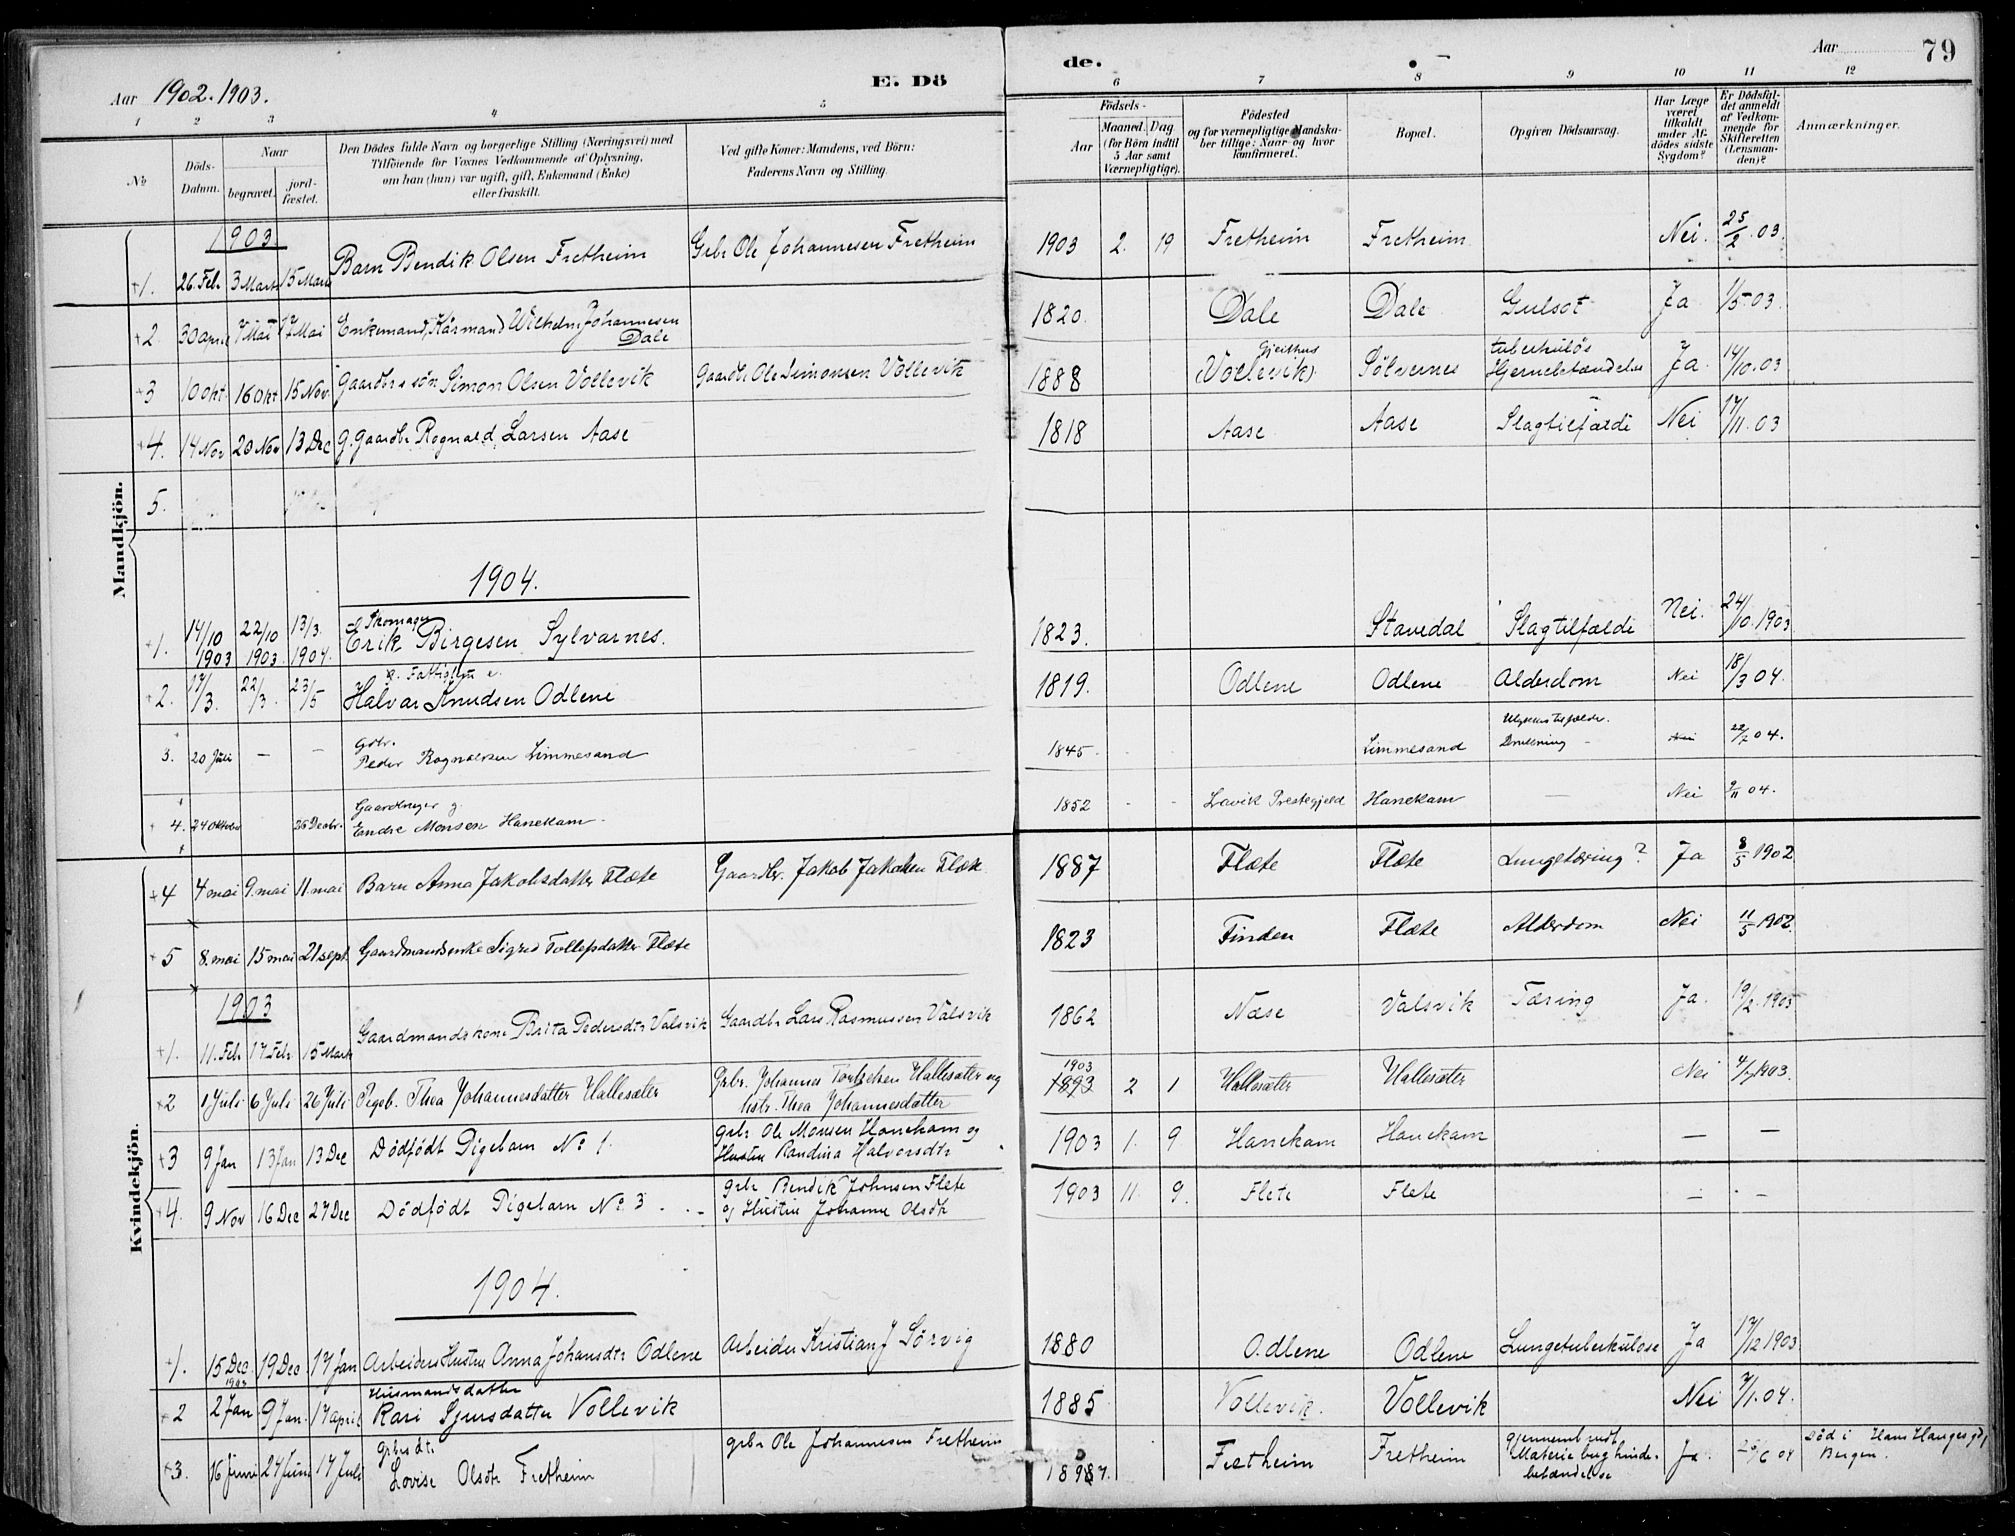 Aar 1902. 1903.
E. Dö
de.
Aar
79
1 2 3 4 5 6 7 8 9 10 11 12
No
Döds-Datum.
Naar
begravet.
jord-fæstet.
Den Dödes fulde Navn og borgerlige Stilling (Næringsvei) med
Tilföiende for Voxnes Vedkommende af Oplysning,
om han (hun) var ugift, gift, Enkemand (Enke)
eller fraskilt.
Ved gifte Koner: Mandens, ved Börn:
Faderens Navn og Stilling.
Födsels-
Aar
Maaned. Dag
(for Börn indtil
5 Aar samt
Værnepligtige).
Födested
og for værnepligtige Mandska-
ber tillige: Naar og hvor
konfirmeret.
Bopæl.
Opgiven Dödsaarsag.
Har Læge
været
tilkaldt
under Af-
dödes sidste
Sygdom?
Er Dödsfal-
det anmeldt
af Vedkom-
mende for
Skifteretten
(Lensman-
den)?
Anmærkninger.
Mandkjön.
1903
+1. 26. Feb 3 Marts 15 Marts Barn Bendik Olsen Fretheim Gbr Ole Johannesen Fretheim 1903 2. 19 Fretheim Fretheim Nei. 25/2.03.
+2 30 april 7 Mai 17 Mai Enkemand, Kårmand Wilhelm Johannesen Dale 1820. Dale Dale Gulsot Ja 1/5 03.
+3 10 okt. 16 okt 15 Nov. Gaardbrs søn Simon Olsen Vollevik Gaardbr Ole Simonsen Vollevik 1888 Gjeithus (Vollevik) Sølvernes tuberkuløs Hjernebetændelse Ja 14/10.03
+4. 14 Nov 20 Nov 13 Dec G. Gaardbr Rognald Larsen Aase 1818 Aase Aase Slagtilfælde Nei 17/11.03
5.
1904.
+1. 14/10 1903 22/10 1903. 13/3. 1904. Skomager Erik Birgesen Sylvarnes. 1823. Stavedal Slagtilfælde Nei. 24/10.1903
+2. 17/3. 22/3. 23/5 Halvar Knudsen Odlene 1819. Odlene Odlene Alderdom Nei 18/3 04.
3. 20 Juli – – Gbr. Peder Rognaldsen Limmesand 1845. Limmesand Ulykkestilfælde. Drukning – Nei 22/7 04.
+4. 24 Oktober 26 Decbr. Gaardbruger g. Endre Monsen Hanekam. 1852 – – Lavik Prestegjeld Hanekam – Nei 9/11 04.
Kvindekjön.
+4 4 mai 9. mai 11. mai Barn Anna Jakobsdatter Flæte Gaardbr. Jakob Jakobsen Flæte. 1887 Flæte Flæte Lungetæring? Ja 8/5 1902
+5 8. mai 15 mai 21 sept. Gaardmandsenke Sigrid Tollefsdatter Flæte 1823 Finden Flæte Alderdom Nei 11/5 1902.
1903
+1. 11. Feb 17 Feb. 15 Marts Gaardmandskone Brita Pedersdtr Valsvik Gaardbr Lars Rasmussen Valsvik 1862 Næse Valsvik Tæring Ja. 19/2.1903
+2 1 Juli 6 Juli 26 Juli Pigeb. Thea Johannesdatter Hallesæter Gbr. Johannes Torkelsen Hallesæter og Hstr. Thea Johannesdatter 1903 1893 2 1 Hallesæter Hallesæter Nei 4/7 1903.
+3 9 Jan 13 Jan 13 Dec Dødfødt Pigebarn No 1. Gbr Ole Monsen Hanekam og Hustru Randina Halvorsdtr 1903 1. 9 Hanekam Hanekam – –
+4. 9 Nov 16 Dec 27 Dec Dødfødt Pigebarn No. 3 Gbr Bendik Johnsen Flete og Hustru Johanne Olsdtr 1903 11. 9. Flete Flete – –
1904.
+1. 15 Dec. 1903 19 Dec 17 Jan Arbeiders Hustru Anna Johansdtr Odlene Arbeider Kristian J Sørvig 1880 Odlene Odlene Lungetuberkulose Ja 17/12 1903
+2 2 Jan 9 Jan. 17 april Husmandsdatter Kari Sjursdatter Vollevik 1885 Vollevik. Vollevik Nei 7/1.04.
+3. 16 Juni 24 Juni 17 Juli Gbrs dtr. Lovise Olsdtr Fretheim Gbr Ole Johannesen Fretheim Fretheim Fretheim Ja. Død i Hans Hauges gd, Bergen.